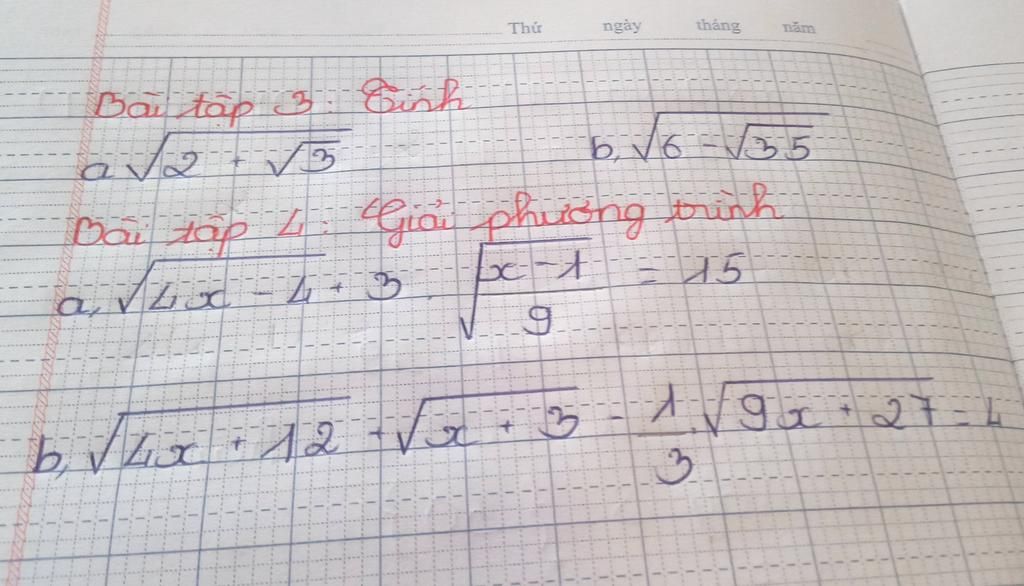 Thứ ngày tháng năm
Bài tập 3: Tính
a √(2 + √3) b, √(6 - √35)
Bài tập 4: Giải phương trình
a, √(4x - 4) + 3. √((x - 1)/9) = 15
b, √(4x + 12) + √(x + 3) - 1/3.√(9x + 27) = 4